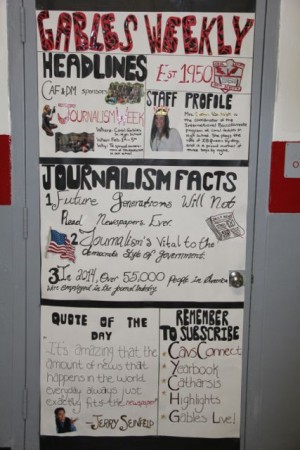 GABLES WEEKLY
HEADLINES
Est 1950
CAF&DM sponsors
JOURNALISM WEEK
Where: Coral Gables
Sr. High School
STAFF PROFILE
is
the coordinator of the
International Baccalaureate
program at Coral Gables Sr.
High School. She enjoys the
JOURNALISM FACTS
1 Future Generations Will Not
Read Newspapers Ever.
2 Journalism's Vital to the
democratic style of government.
3 In 2014, Over 55,000 people in America
were employed in the journal industry.
QUOTE OF THE
DAY
It's amazing that the
amount of news that
happens in the world
everyday always just
exactly fits the newspaper
-JERRY SEINFELD
REMEMBER
TO SUBSCRIBE
CavsConnect
Yearbook
Catharsis
Highlights
Gables Live!